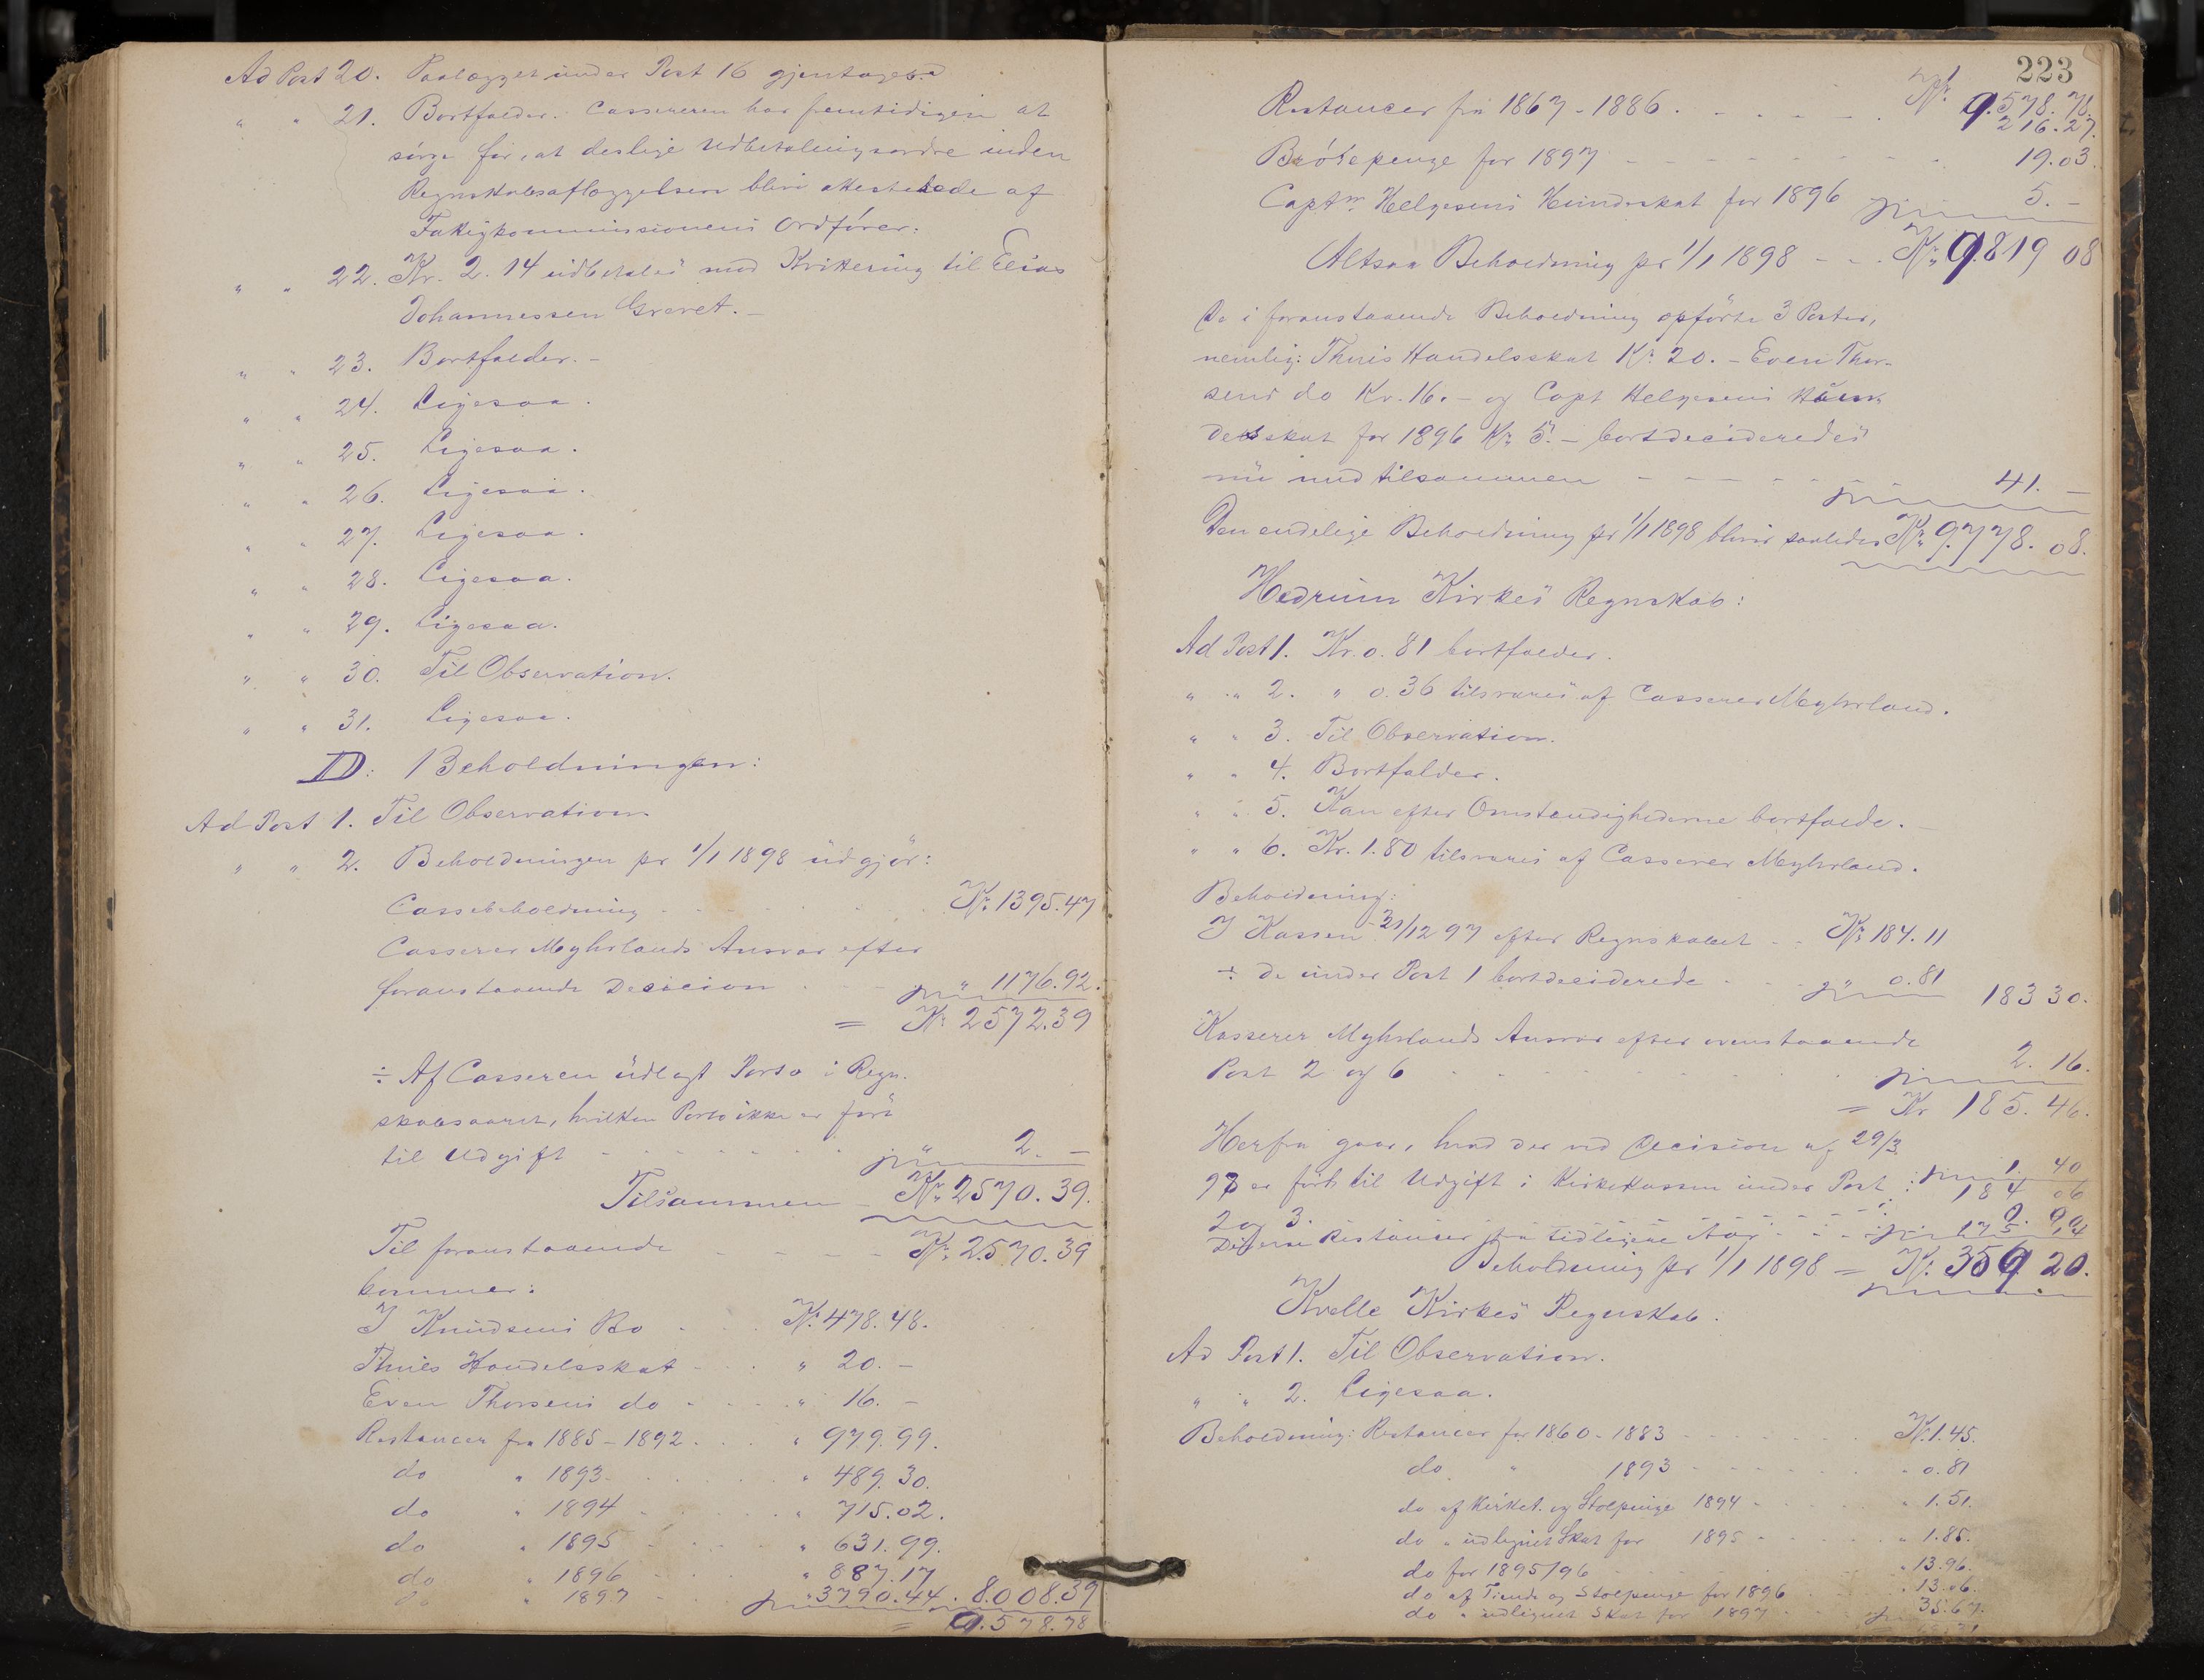 Ad Post 20. Paalægget under Post 16 gjentages.
" " 21. Bortfalder. Cassereren har fremtidigen at
sörge for, at deslige Udbetalingsordre inden
Regnskabsaflæggelsen blive attesterede af
Fattigkommissionens Ordförer.
" " 22. Kr. 2.14 udbetales mod Kvittering til Elias
Johannessen Gravet.-
" " 23. Bortfalder.-
" " 24. Ligesaa.
" " 25. Ligesaa.
" " 26. Ligesaa.
" " 27. Ligesaa.
" " 28. Ligesaa.
" " 29. Ligesaa.
" " 30. Til Observation.
" " 31. Ligesaa.
D: Beholdningen:
Ad Post 1. Til Observation.
" " 2. Beholdningen pr 1/1 1898 udgjör:
Cassebeholdning Kr. 1395.47
Casserer Myhrlands Ansvar efter
foranstaaende Decision " 1176.92.
= Kr. 2572.39
÷ Af Casseren udlagt Porto i Regn-
skabsaaret, hvilken Porto ikke er fört
til Udgift " 2.-
Tilsammen Kr. 2570.39.
Til foranstaaende Kr. 2570.39
kommer:
I Knudsens Bo Kr. 478.48.
Thuis Handelsskat " 20.-
Even Thorsens do " 16.-
Restancer fra 1885-1892 " 979.99.
do " 1893 " 489.30.
do " 1894 " 715.02.
do " 1895 " 631.99.
do " 1896 " 887.17
do " 1897 " 3790.44. 8.008.39
= 9.578.78
223
Kr. 9.578.78.
Restancer fra 1867-1886. 216.27.
Brötepenge for 1897 19.03.
Captn. Helgesens Hundeskat for 1896 5.-
Altsaa Beholdning pr 1/1 1898 Kr. 9.819 08
De i foranstaaende Beholdning opförte 3 Poster,
nemlig: Thuis Handelsskat Kr. 20.- Even Thor-
sens do Kr. 16.- og Capt Helgesens Hun-
deskat for 1896 Kr. 5.- bortdecideredes
nu med tilsammen 41.-
Den endelige Beholdning pr 1/1 1898 bliver saaledes Kr. 9.778.08.
Hedrum Kirkes Regnskab:
Ad Post 1. Kr. 0.81 bortfalder.
" " 2. " 0.36 tilsvares af Casserer Myhrland.
" " 3. Til Observation.
" " 4. Bortfalder.
" " 5. Kan efter Omstændighederne bortfalde.-
" " 6. Kr. 1.80 tilsvares af Casserer Myhrland.
Beholdning:
I Kassen 31/12 97 efter Regnskabet Kr. 184.11
÷ de under Post 1 bortdeciderede " 0.81 183 30.
Kasserer Myhrlands Ansvar efter ovenstaaende
Post 2 og 6 2.16.
= Kr 185.46.
Herfra gaar, hvad der ved Decision af 29/3
97 er fört til Udgift i Kirkekassen under Post 1. 40
184 06
2 og 3.
Diverse Restancer fra tidligere Aar
Beholdning pr 1/1 1898 = Kr. 359 20.
Kvelle Kirkes Regnskab.
Ad Post 1. Til Observation.
" " 2. Ligesaa.
Beholdning: Restancer for 1860-1883 Kr. 1.45.
do " 1893 " 0.81
do af Kirket. og Stolpenge 1894 " 1.51.
do " udlignet Skat for 1895 " 1.85.
do for 1895/96 " 13.96.
do af Tiende og Stolpenge for 1896 " 13.06.
do " udlignet Skat for 1897 35.67.